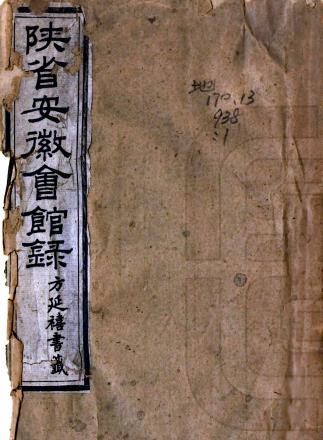 陕省安徽會館録
方延禧書籤
地
170.13
938
:1